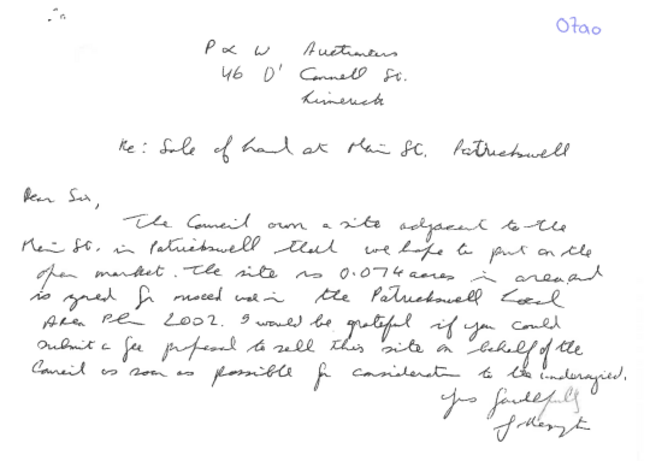 07ao
P & W Auctioneers
46 O' Connell St.
Limerick
Re: Sale of Land at Main St. Patrickswell
Dear Sir,
The Council own a site adjacent to the
Main St. in Patrickswell that we hope to put on the
open market. The site is 0.074 acres in area and
is zoned for mixed use in the Patrickswell Local
Area Plan 2002. I would be grateful if you could
submit a fee proposal to sell this site on behalf of the
Council as soon as possible for consideration to the undersigned.
Yrs faithfully